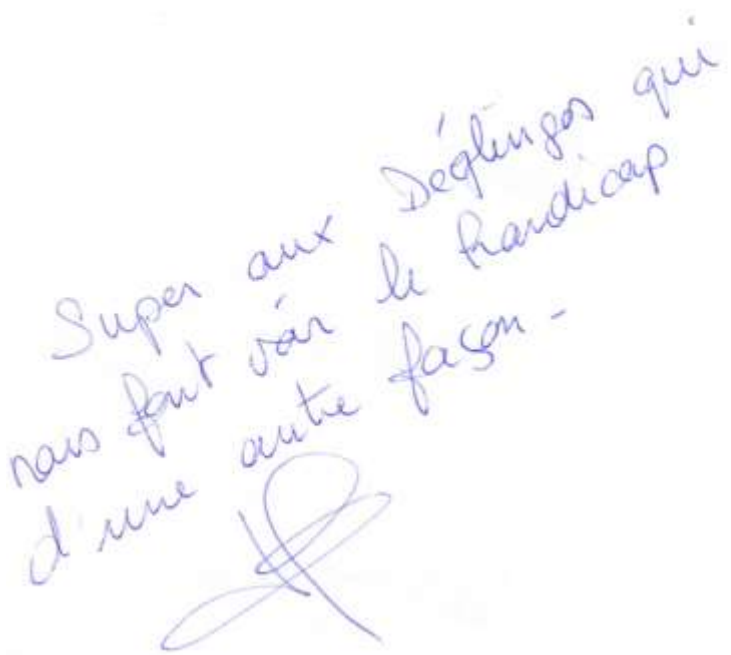 Super aux Déglingos qui
nous font voir le handicap
d'une autre façon -